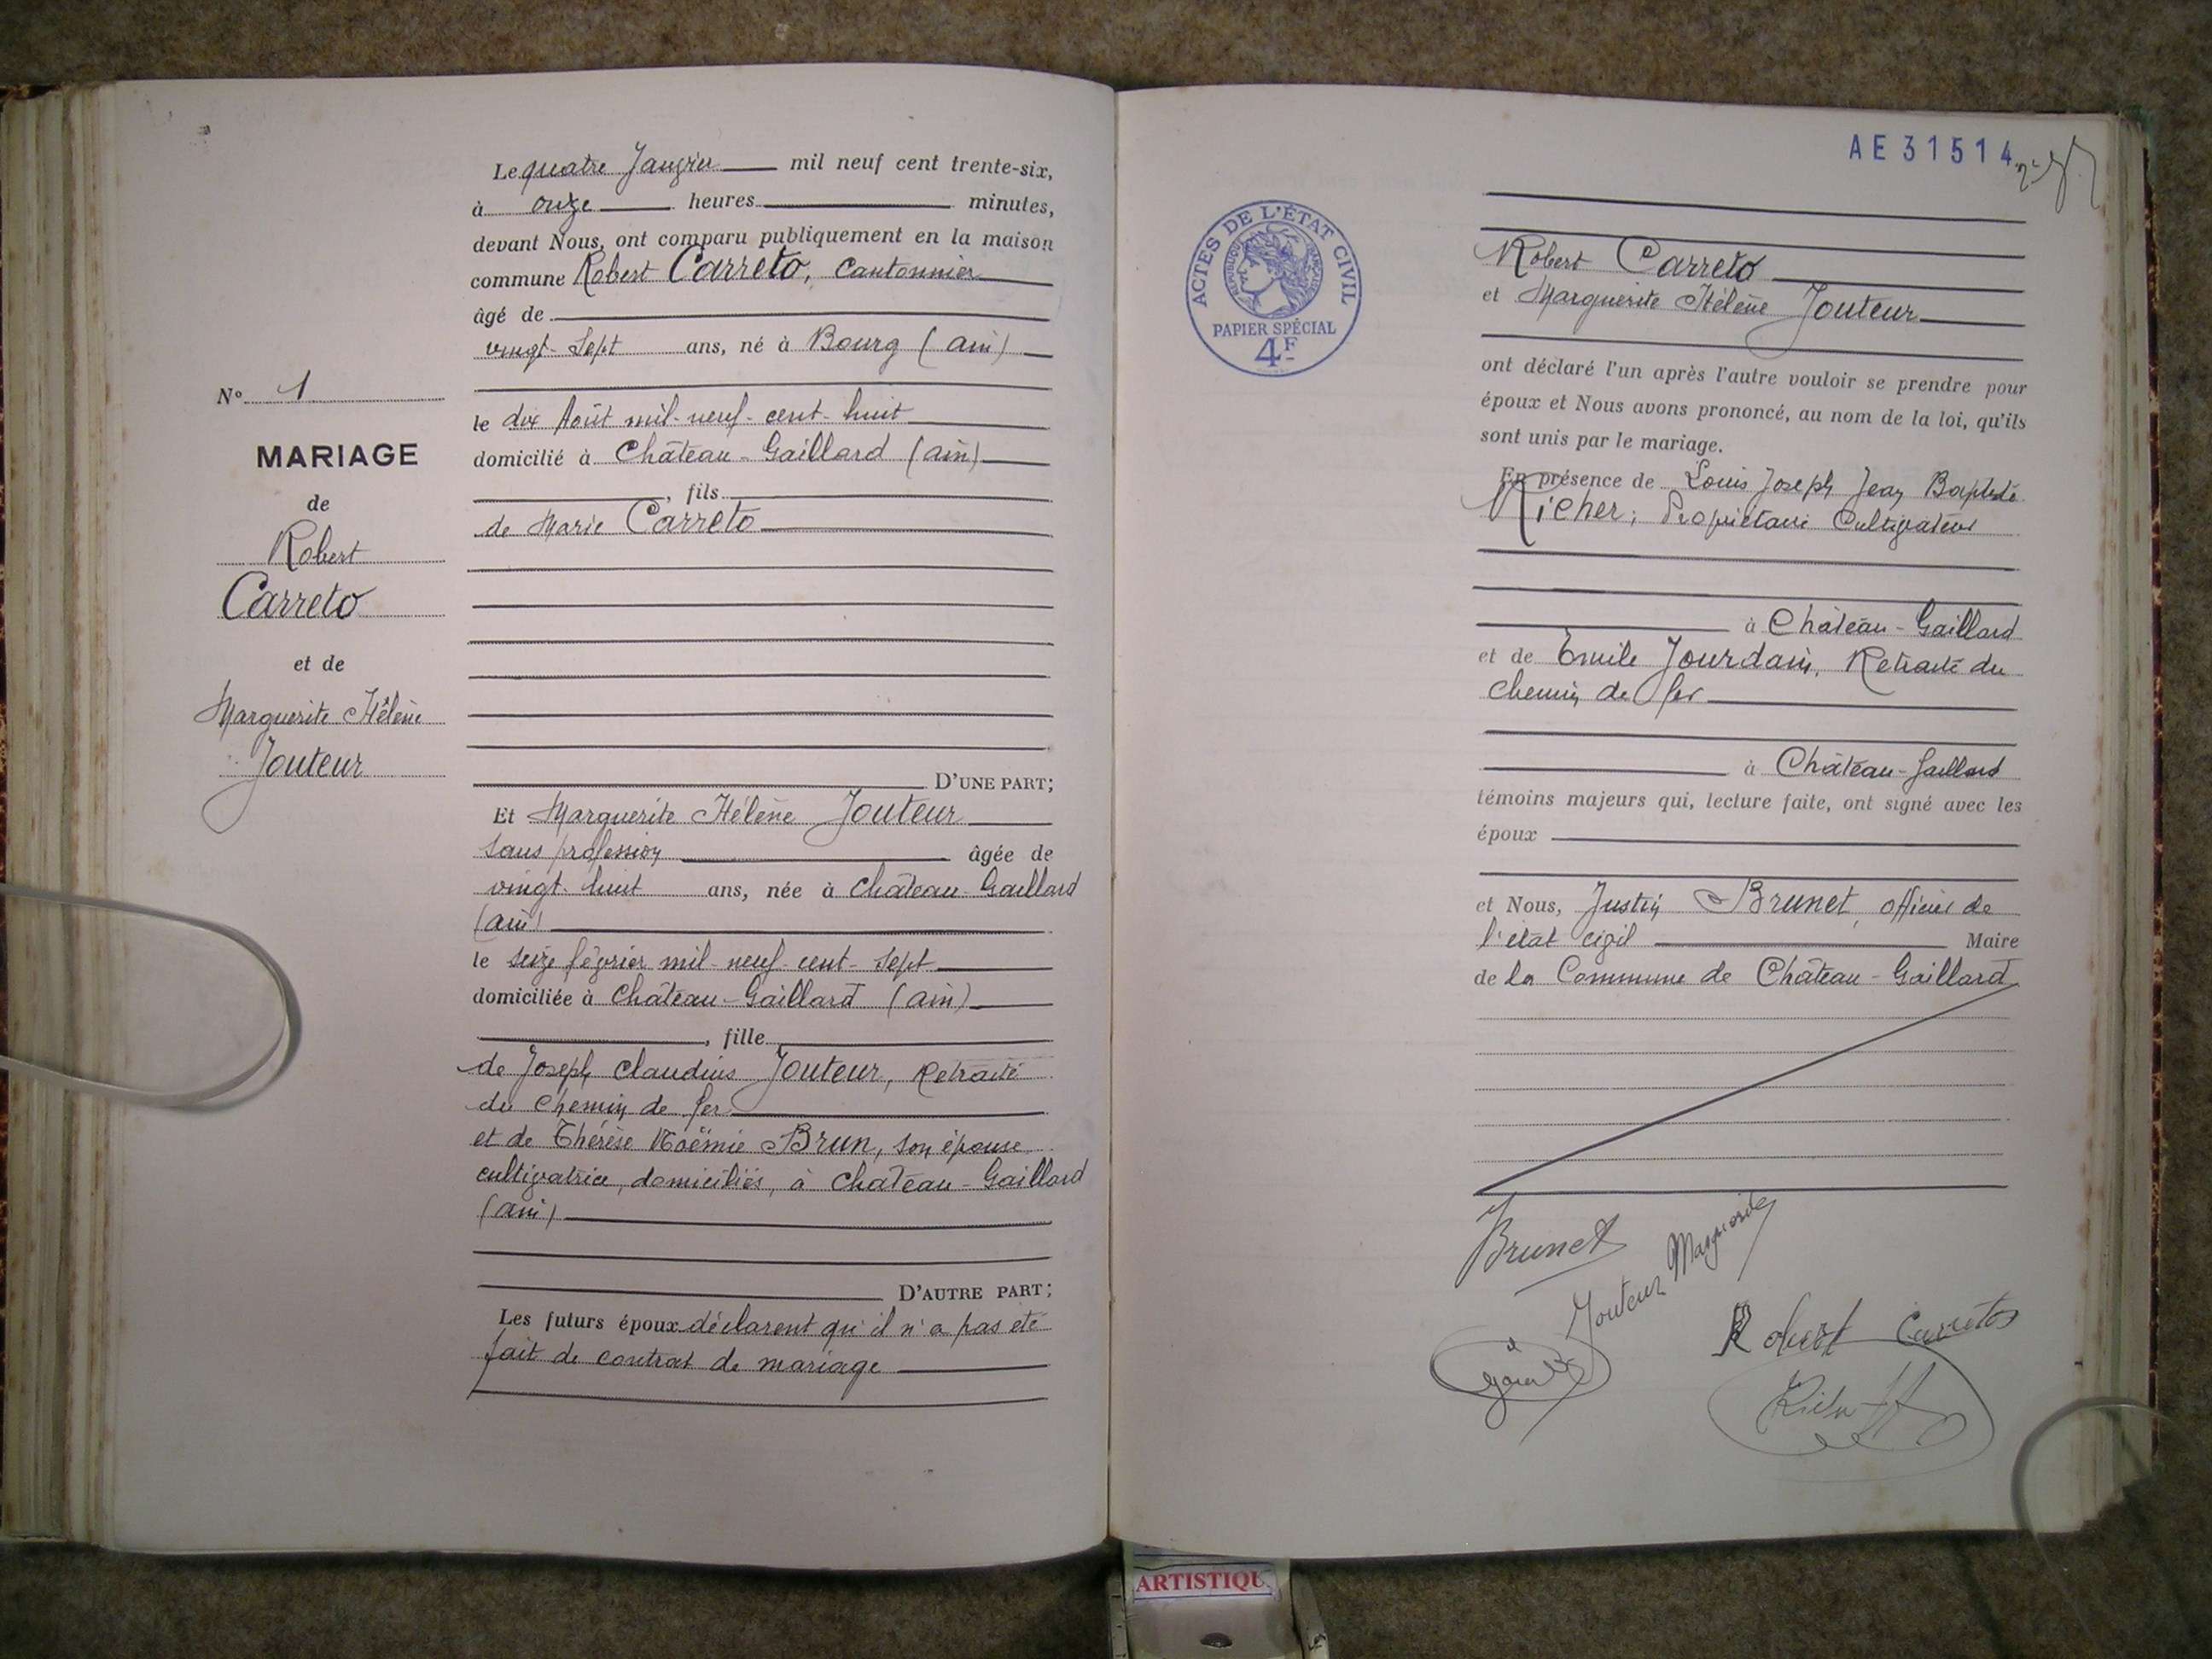 Le quatre Janvier mil neuf cent trente-six,
à onze heures minutes,
devant Nous, ont comparu publiquement en la maison
commune Robert Carreto, Cantonnier
âgé de
vingt-sept ans, né à Bourg (ain)
le dix Août mil-neuf-cent-huit
domicilié à Château-Gaillard (ain)
, fils
de Marie Carreto
D'UNE PART;
Et Marguerite Hélène Jouteur
sans profession âgée de
vingt-huit ans, née à Château-Gaillard
(ain)
le seize février mil-neuf-cent-sept
domiciliée à Château-Gaillard (ain)
, fille
de Joseph Claudius Jouteur, Retraité
du Chemin de fer
et de Thérèse Noëmie Brun, son épouse
cultivatrice, domiciliés, à Château-Gaillard
(ain)
D'AUTRE PART;
Les futurs époux déclarent qu'il n'a pas été
fait de contrat de mariage
N° 1
MARIAGE
de
Robert
Carreto
et de
Marguerite Hélène
Jouteur
AE31514
ACTES DE L'ÉTAT CIVIL
RÉPUBLIQUE FRANÇAISE
PAPIER SPÉCIAL
4F
Robert Carreto
et Marguerite Hélène Jouteur
ont déclaré l'un après l'autre vouloir se prendre pour
époux et Nous avons prononcé, au nom de la loi, qu'ils
sont unis par le mariage.
En présence de Louis Joseph Jean Baptiste
Richer, Propriétaire Cultivateur
à Château-Gaillard
et de Emile Jourdain, Retraité du
chemin de fer
à Château-Gaillard
témoins majeurs qui, lecture faite, ont signé avec les
époux
et Nous, Justin Brunet, officier de
l'état civil Maire
de la Commune de Château-Gaillard
Brunet
Jouteur Marguerite
Robert Carreto
ARTISTIQU